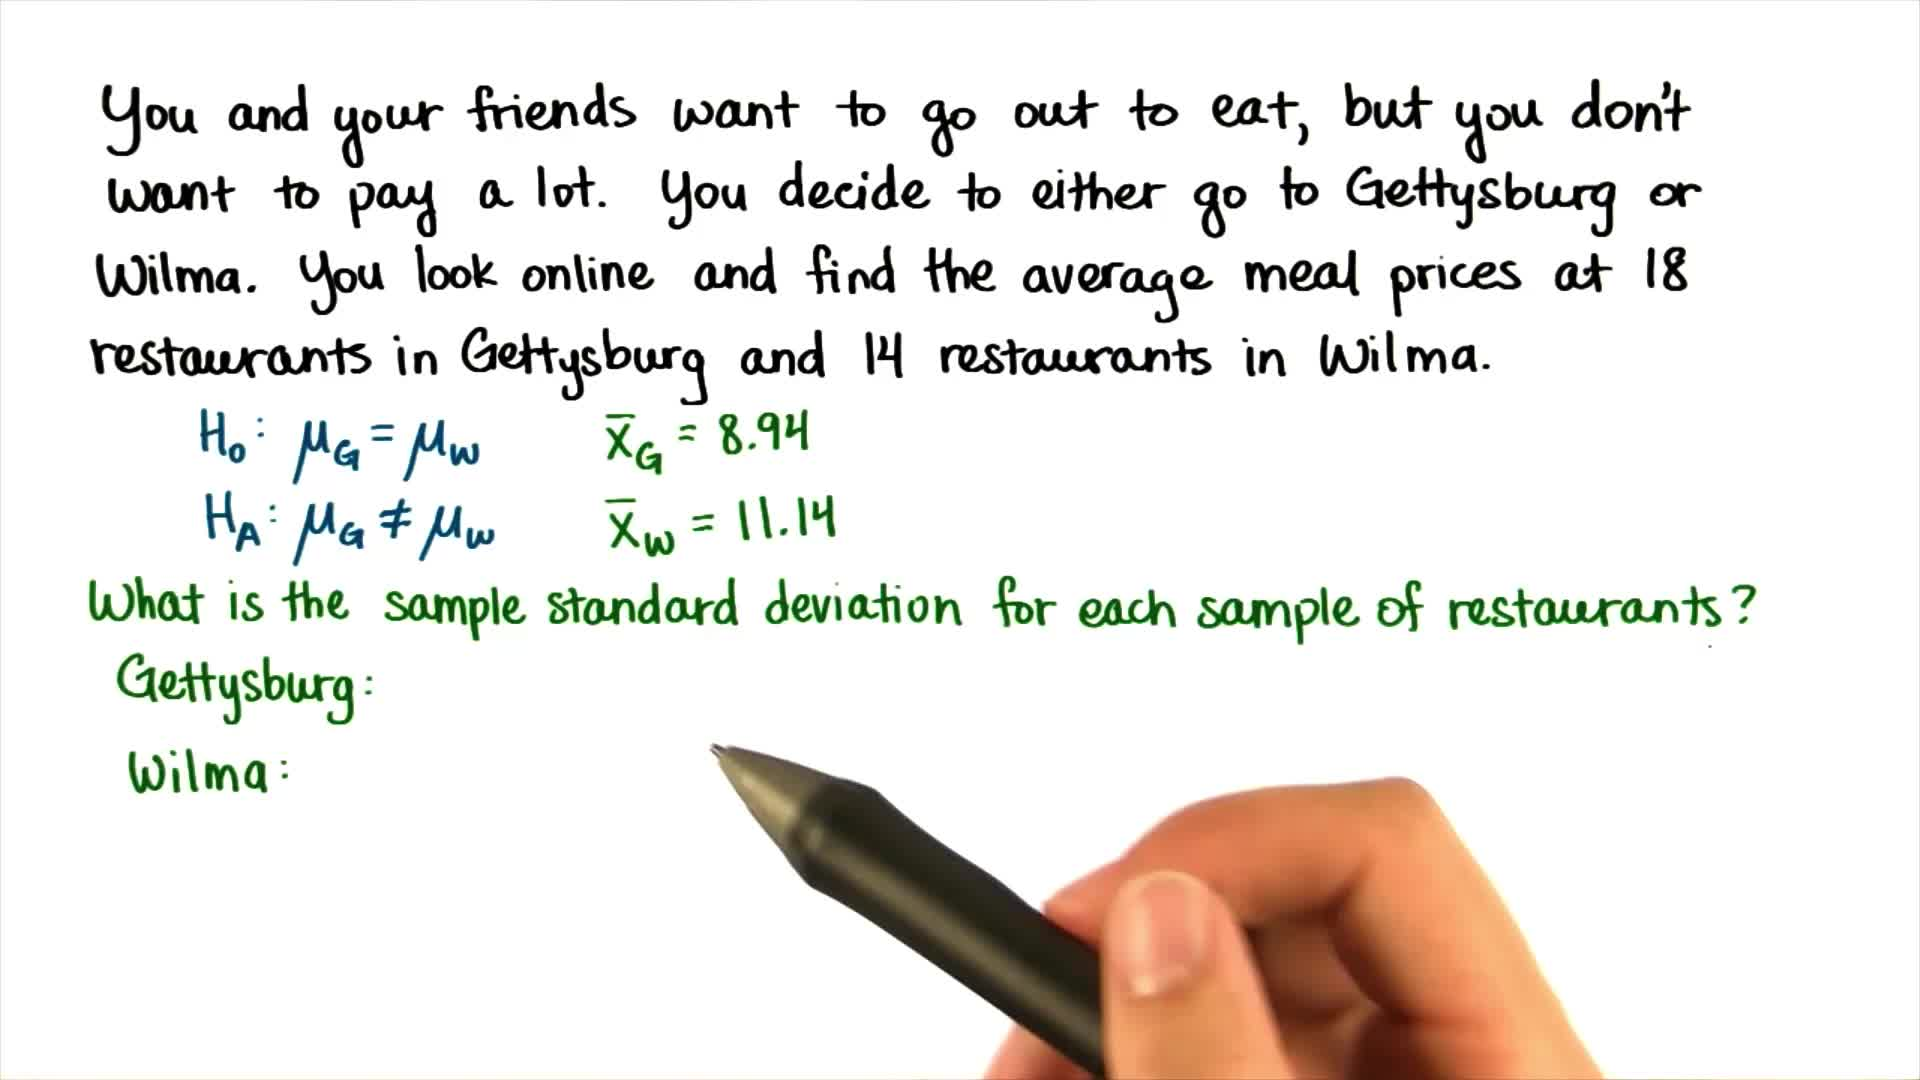 You and your friends want to go out to eat, but you don't
want to pay a lot. You decide to either go to Gettysburg or
Wilma. You look online and find the average meal prices at 18
restaurants in Gettysburg and 14 restaurants in Wilma.
H₀: μ_G = μ_W x̄_G = 8.94
H_A: μ_G ≠ μ_W x̄_W = 11.14
What is the sample standard deviation for each sample of restaurants?
Gettysburg:
Wilma: